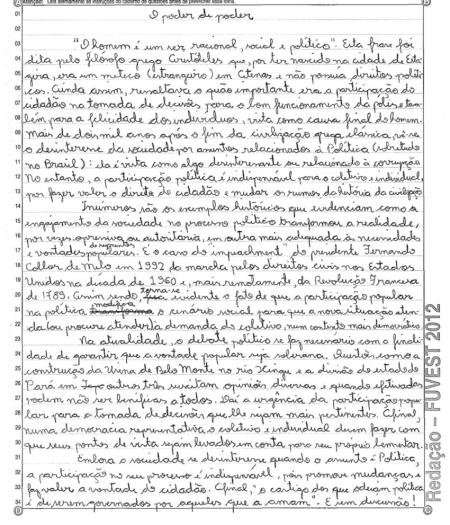 Atenção: Leia atentamente as instruções do caderno de questões antes de preencher esta folha.
O poder de poder
"O homem é um ser racional, social e político". Esta frase foi
dita pelo filósofo grego Aristóteles que, por ter nascido na cidade de Esta
gira, era um meteco (estrangeiro) em Atenas e não possuía direitos políti
cos. Ainda assim, ressaltava o quão importante era a participação do
cidadão na tomada de decisões para o bom funcionamento da pólis e tam
bém para a felicidade dos indivíduos, vista como causa final do homem.
Mais de dois mil anos após o fim da civilização grega clássica, vê-se
o desinteresse da sociedade por assuntos relacionados à Política (sobretudo
no Brasil): ela é vista como algo desinteressante ou relacionado à corrupção.
No entanto, a participação política é indispensável para o coletivo e individual,
por fazer valer o direito do cidadão e mudar os rumos da história da civilização
Inúmeros são os exemplos históricos que evidenciam como o
engajamento da sociedade no processo político transformou a realidade,
por vezes opressiva ou autoritária, em outra mais adequada às necessidades
e vontades populares. É o caso do impeachment do presidente Fernando
Collor de Melo em 1992 da marcha pelos direitos civis nos Estados
Unidos na década de 1960 e, mais remotamente, da Revolução Francesa
de 1789. Assim sendo, torna-se evidente o fato de que a participação popular
na política modifica o cenário social para que a nova situação aten
da (ou procure atender) a demanda do coletivo, num contexto mais democrático.
Na atualidade, o debate político se faz necessário com a finali
dade de garantir que a vontade popular seja soberana. Questões como a
construção da Usina de Belo Monte no rio Xingu e a divisão do estado do
Pará em outros três suscitam opiniões diversas e quando efetivadas
podem não ser benéficas a todos. Daí a urgência da participação popu
lar para a tomada de decisões que lhe sejam mais pertinentes. Afinal,
numa democracia representativa, o coletivo e individual devem fazer com
que seus pontos de vista sejam levados em conta para seu próprio bem-estar.
Embora a sociedade se desinteresse quando o assunto é Política,
a participação no seu processo é indispensável, pois promove mudanças e
faz valer a vontade do cidadão. Afinal, "o castigo dos que odeiam política
é serem governados por aqueles que a amam". E sem discussão!
Redação – FUVEST 2012